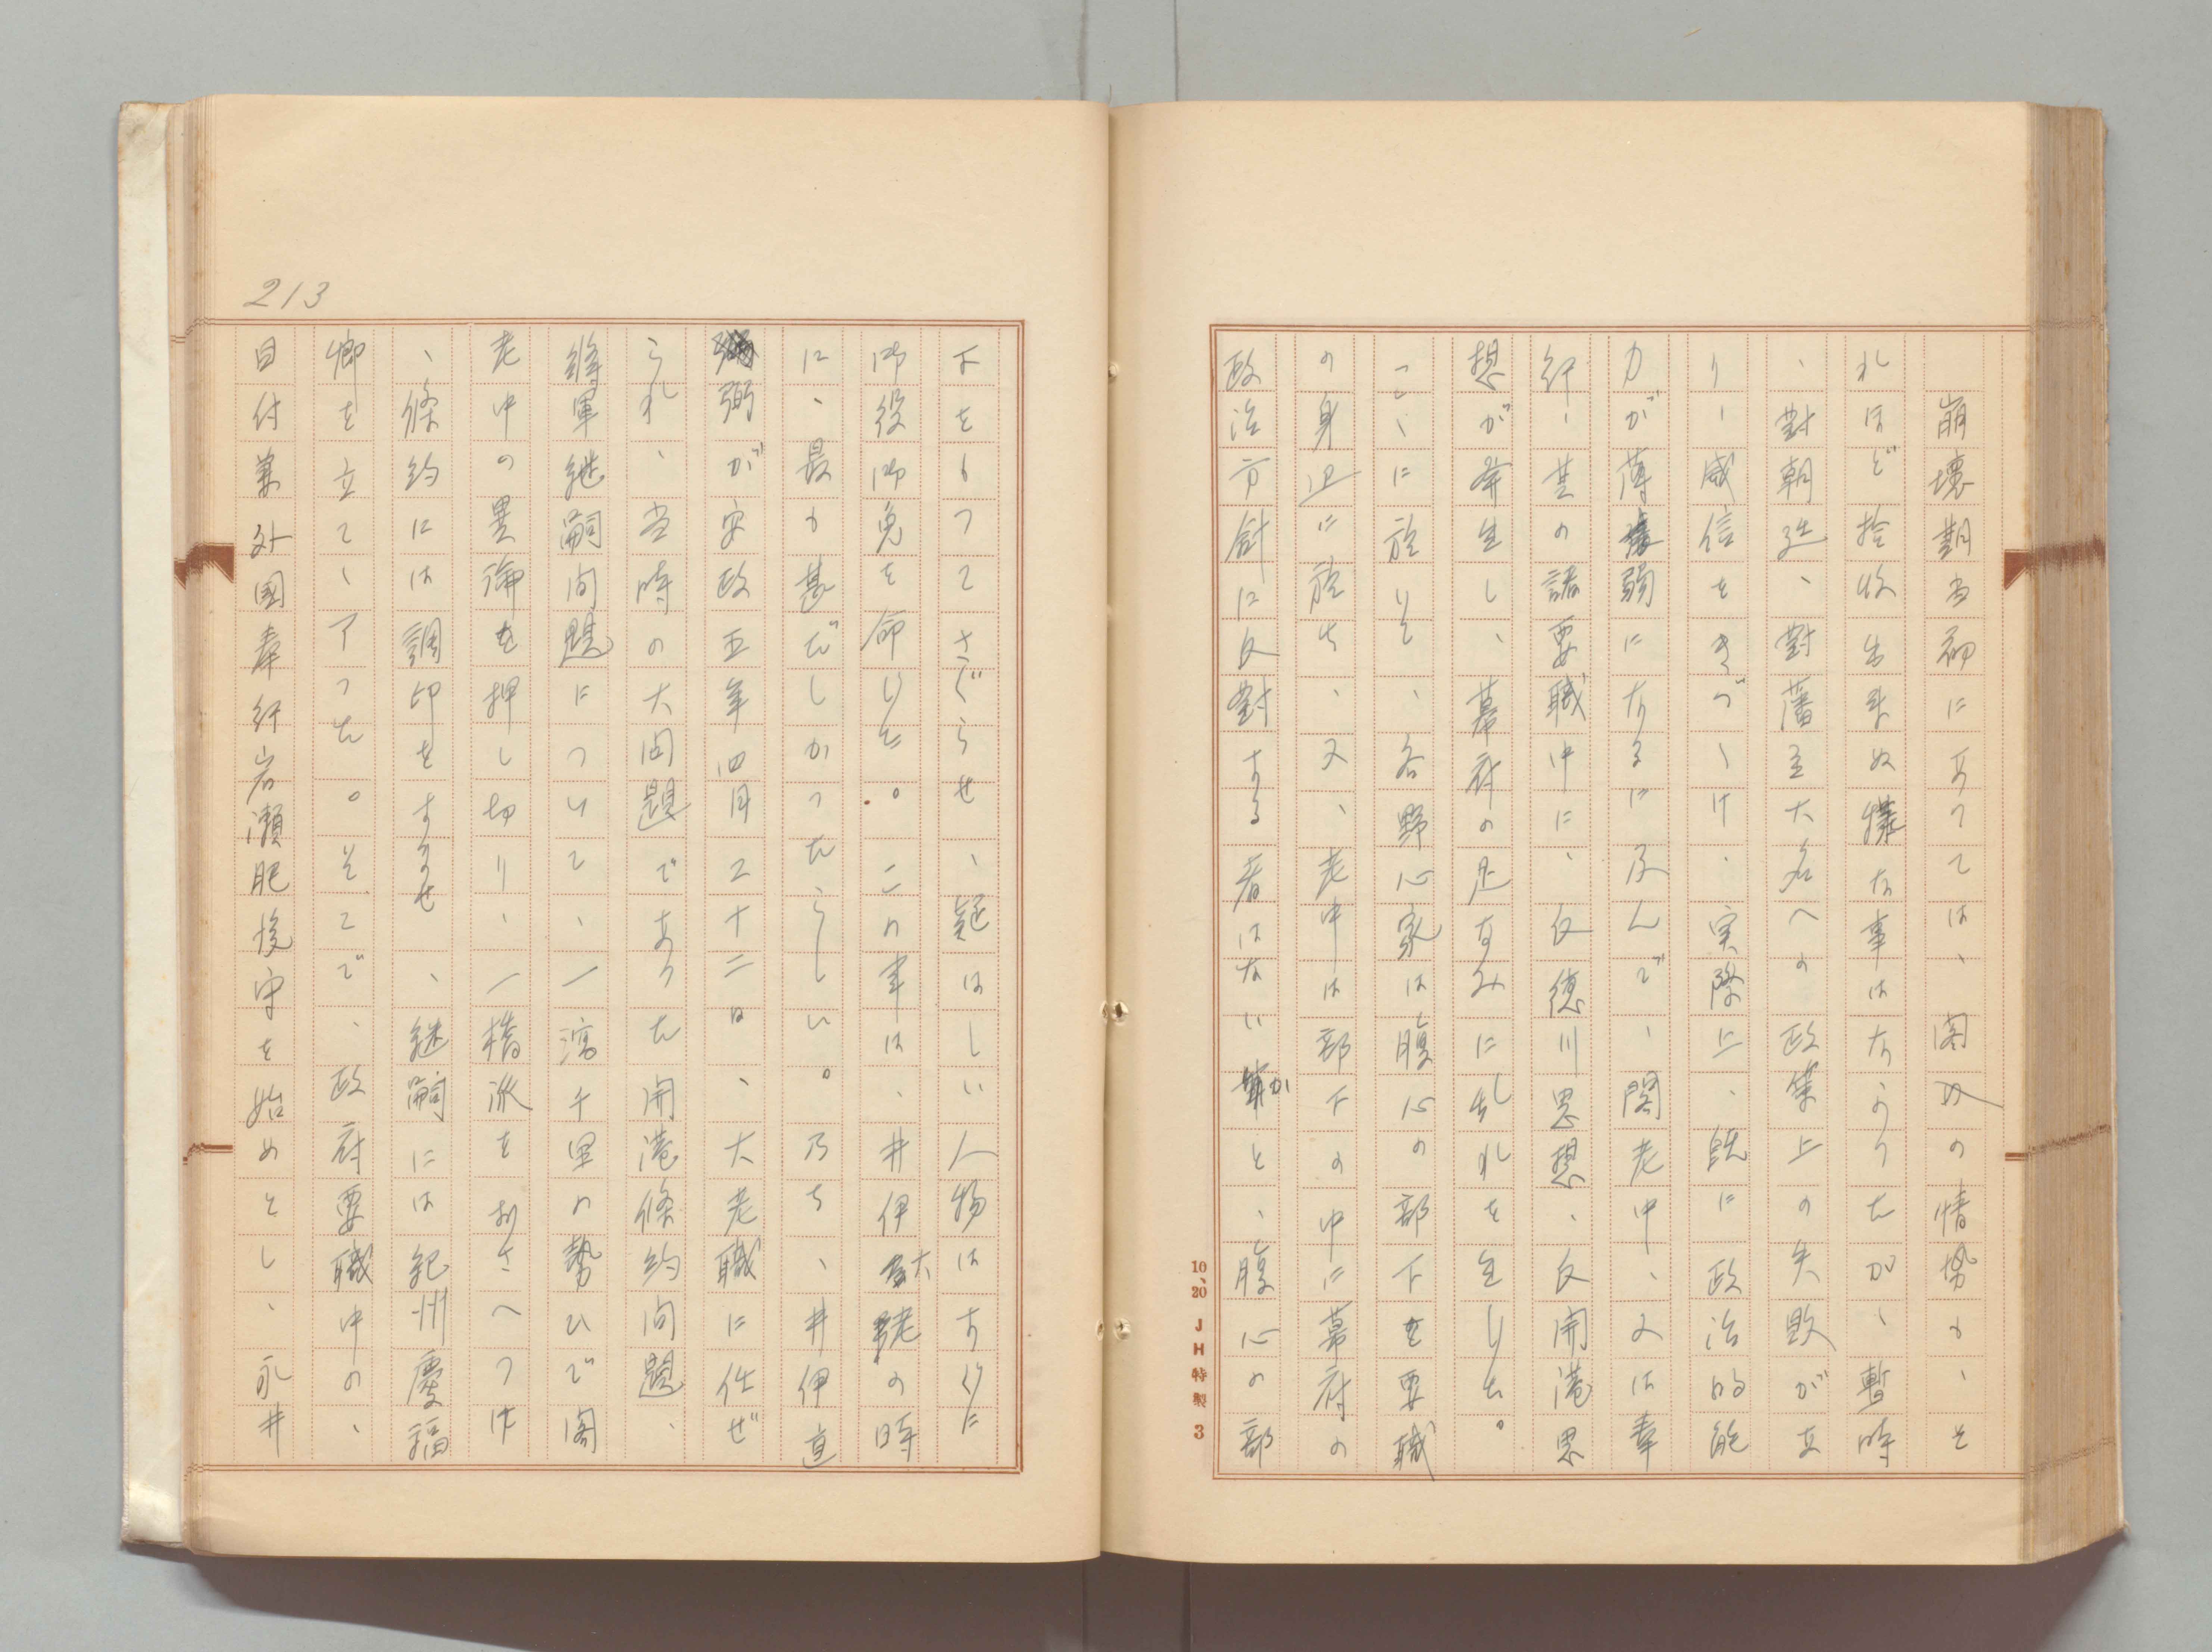 崩壊期当初にあつては、閣内の情勢も、そ
れほど拾收出来ぬ様な事はなかつたが、暫時
、對朝廷、對藩主大名への政策上の失敗が立
り、威信をきづゝけ、実際に、既に政治的能
力が薄弱になるに及んで、閣老中、又は奉
行、其の諸要職中に、反徳川思想、反開港思
想が発生し、幕府の足なみに乱れを生じた。
こゝに於いて、各野心家は腹心の部下を要職
の身辺に放ち、又、老中は部下の中に幕府の
政治方針に反對する者はないかと、腹心の部
下をもつてさぐらせ、疑はしい人物はすぐに
御役御免を命じた。この事は、井伊大老の時
に、最も甚だしかつたらしい。乃ち、井伊直
弼が安政五年四月二十二日、大老職に任ぜ
られ、当時の大問題であつた開港條約問題、
將軍継嗣問題について、一瀉千里の勢ひで閣
老中の異論を押し切り、一橋派をおさへつけ
、條約には調印をすませ、継嗣には紀州慶福
卿を立てゝ了つた。そこで、政府要職中の、
目付兼外国奉行岩瀬肥後守を始めとし、永井
213
10、20 JH特製 3